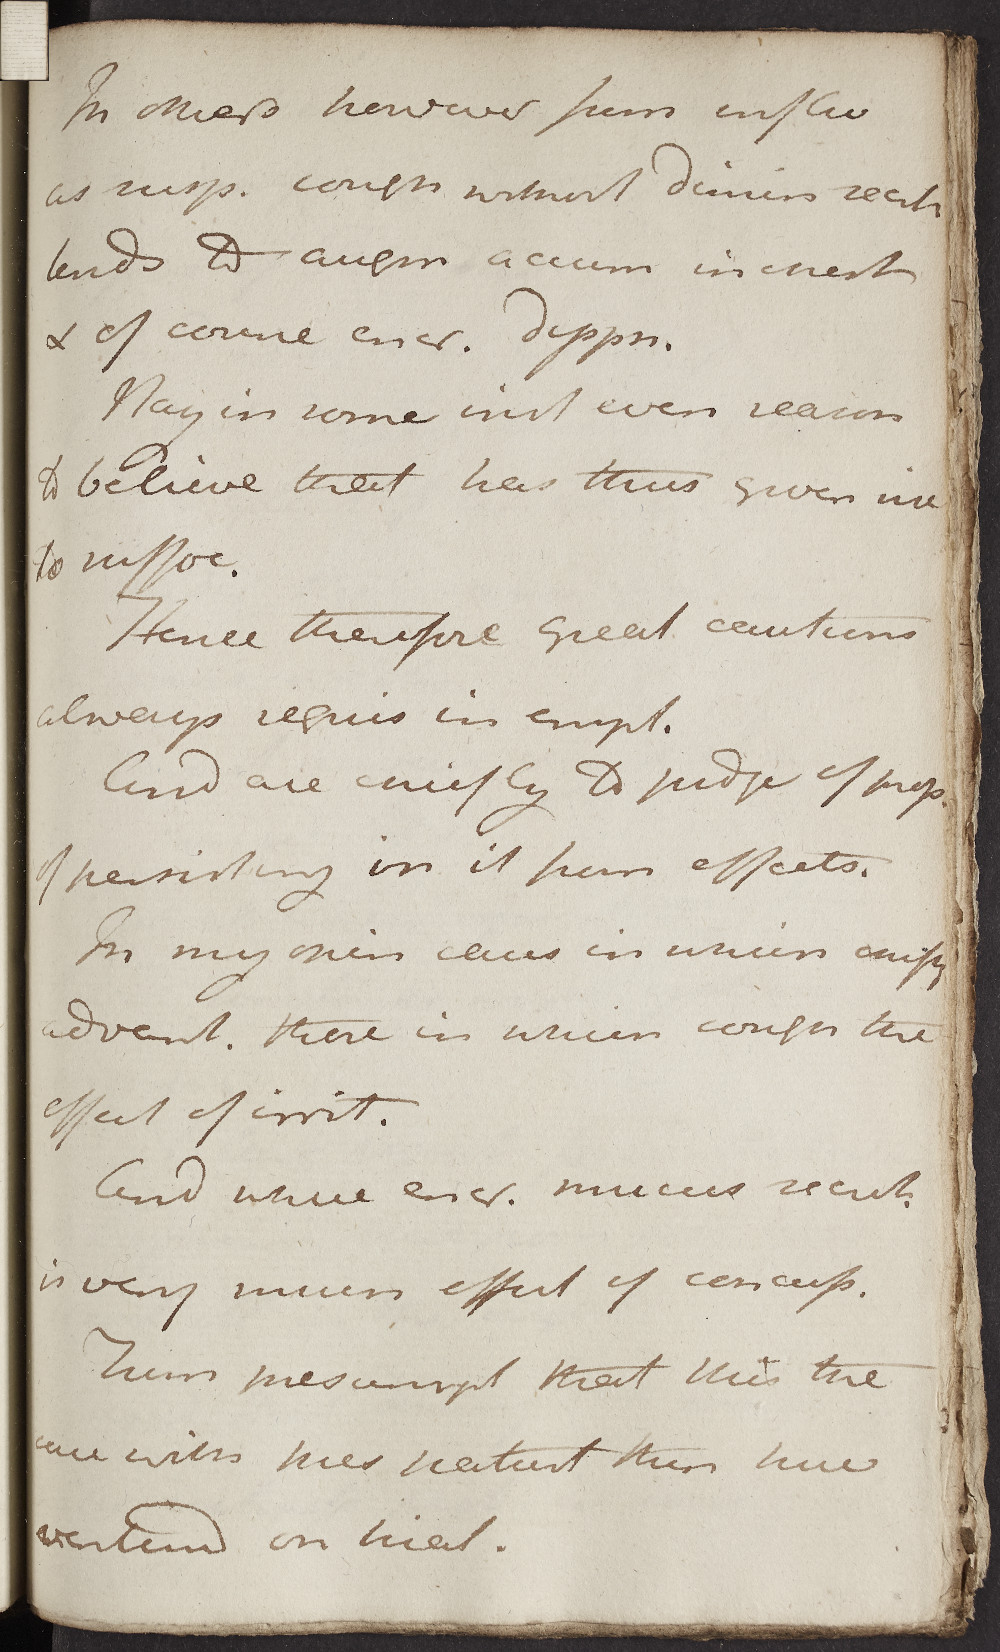 In others however from influ
as susp. cough without dimin secret
tends to augm accum in chest
& of course encr. dyspn.
Nay in some inst even reason
to believe that has thus given rise
to suffoc.
Hence therefore great cautions
always requis in empl.
And are chiefly to judge of prop.
of persisting in it from effects.
In my opin cases in which chiefly
advant. those in which cough the
effect of irrit.
And where encr. mucus secret.
is very much effect of concuss.
From presumpt that this the
case with this patient then have
ventured on trial.